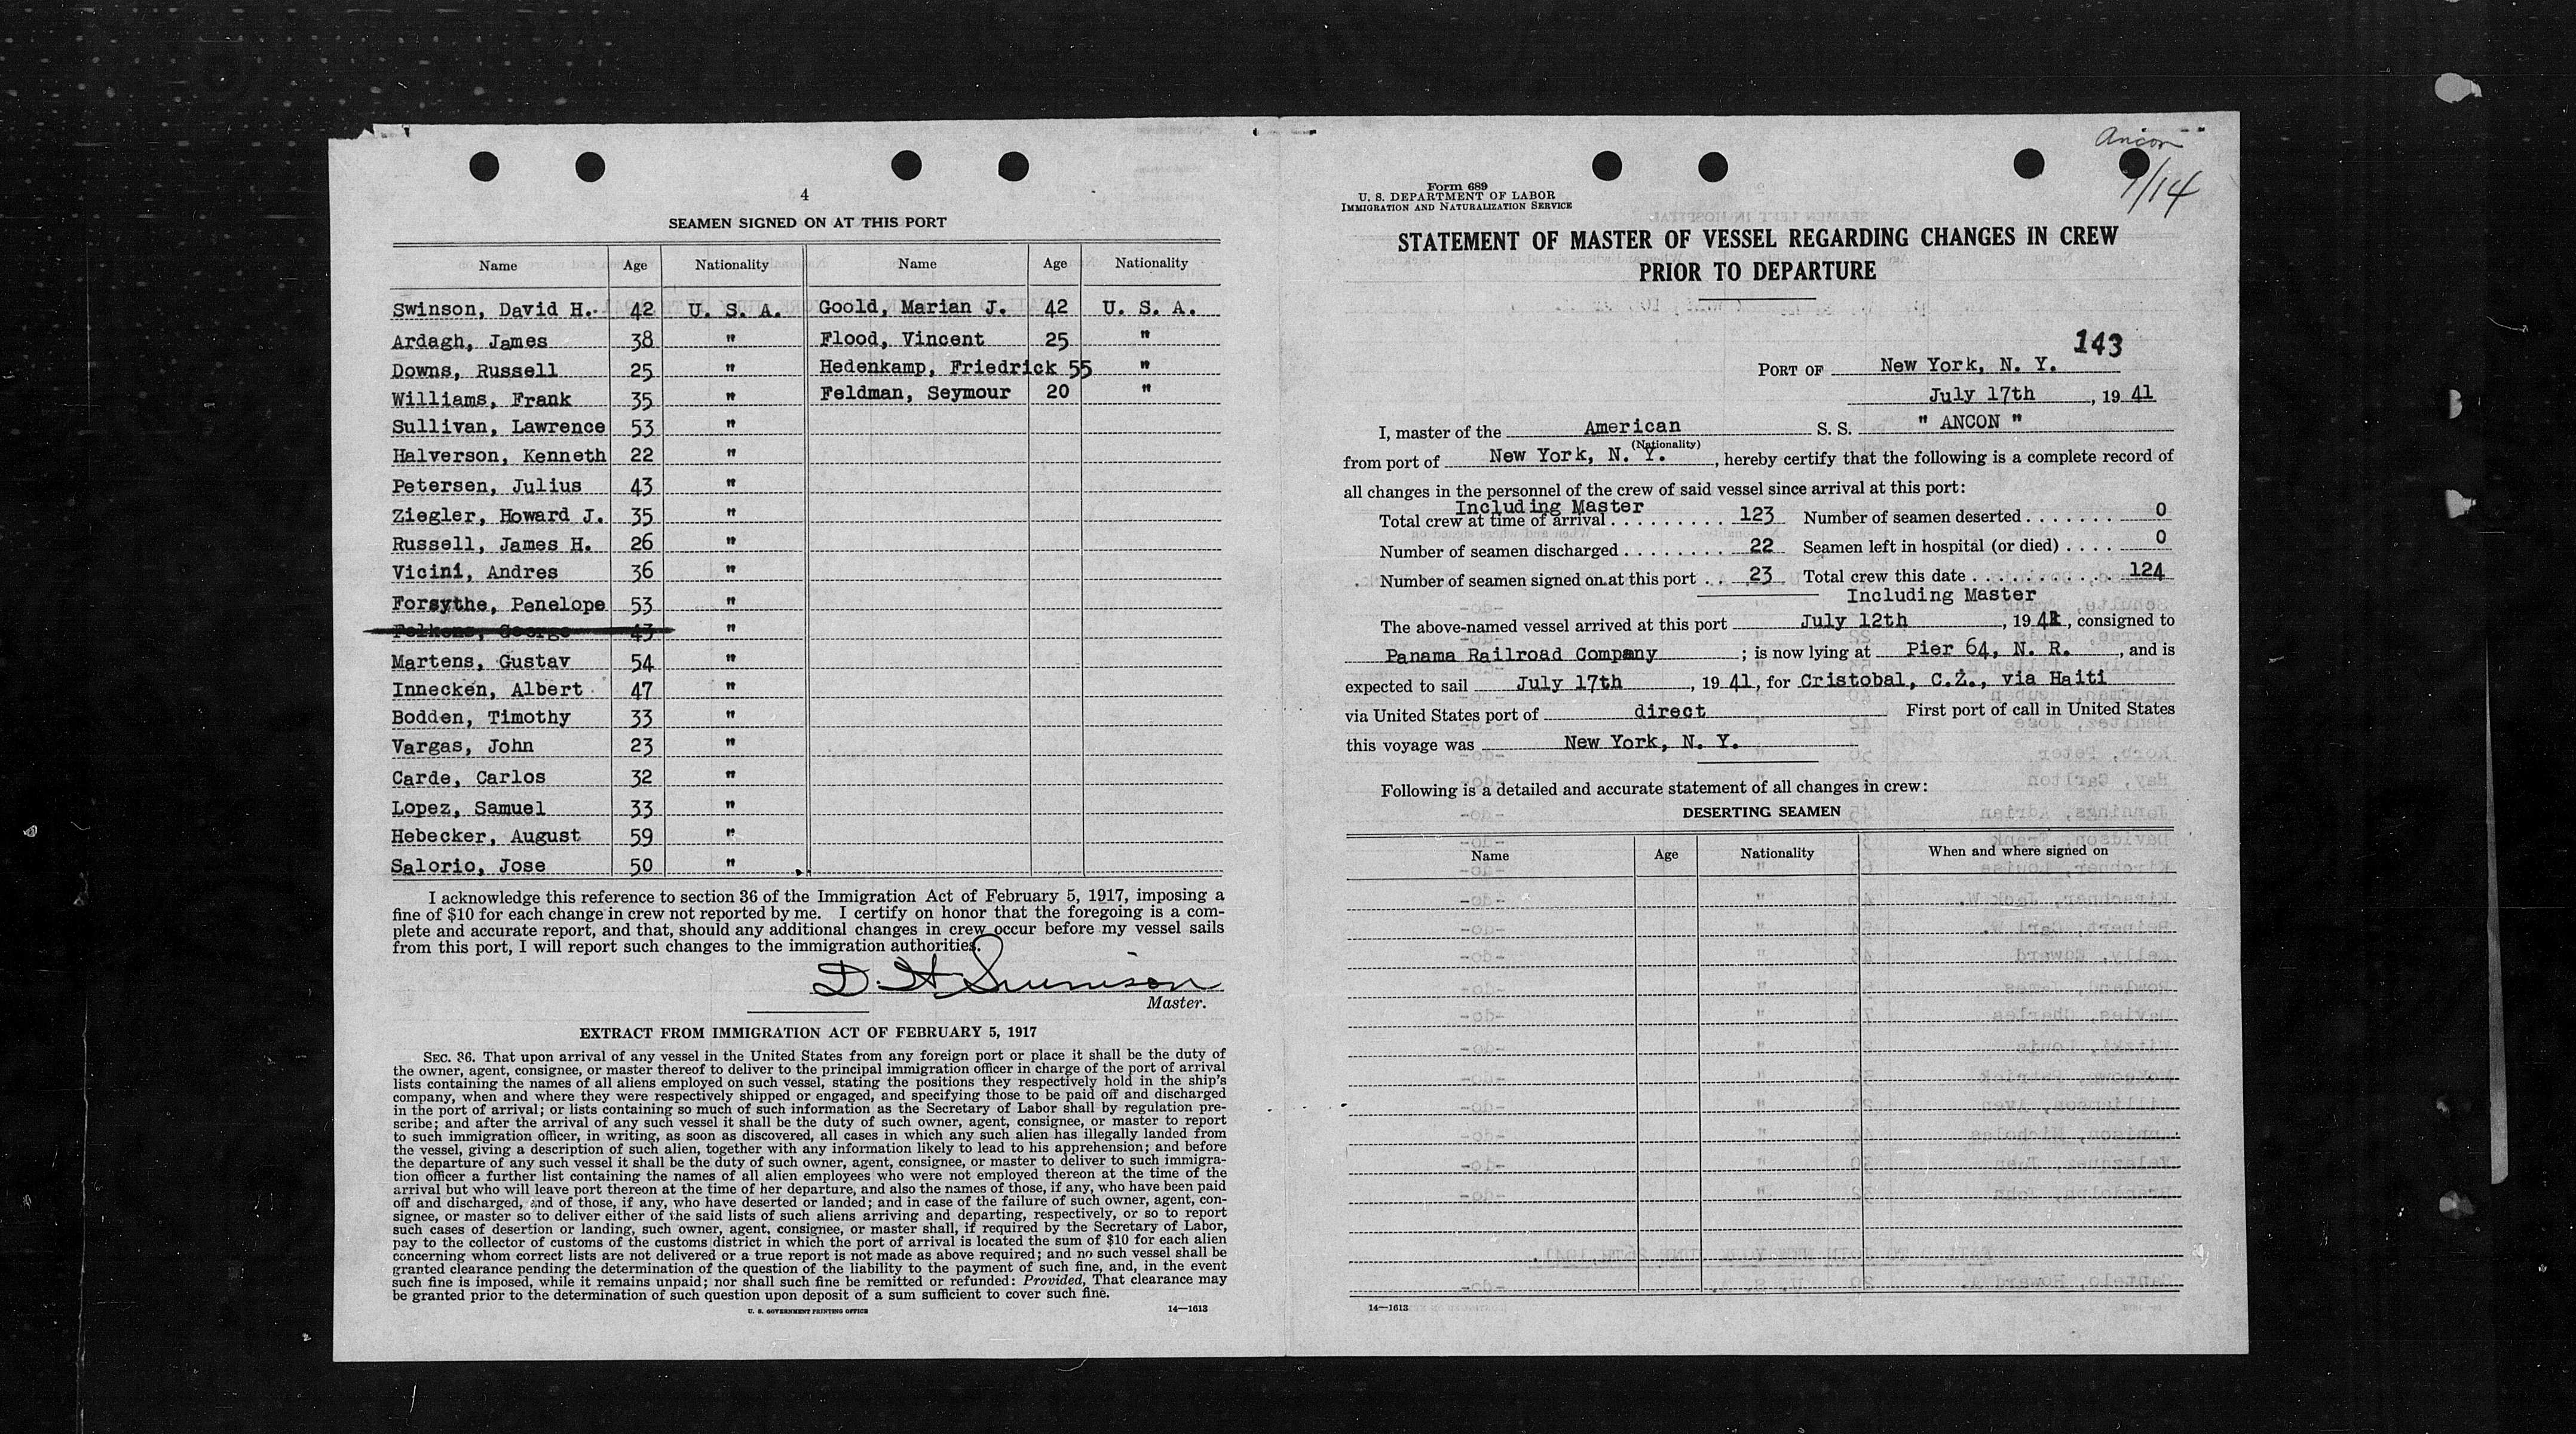 4
SEAMEN SIGNED ON AT THIS PORT
Name Age Nationality Name Age Nationality
Swinson, David H. 42 U. S. A. Goold, Marian J. 42 U. S. A.
Ardagh, James 38 " Flood, Vincent 25 "
Downs, Russell 25 " Hedenkamp, Friedrick 55 "
Williams, Frank 35 " Feldman, Seymour 20 "
Sullivan, Lawrence 53 "
Halverson, Kenneth 22 "
Petersen, Julius 43 "
Ziegler, Howard J. 35 "
Russell, James H. 26 "
Vicini, Andres 36 "
Forsythe, Penelope 53 "
George 43 "
Martens, Gustav 54 "
Innecken, Albert 47 "
Bodden, Timothy 33 "
Vargas, John 23 "
Carde, Carlos 32 "
Lopez, Samuel 33 "
Hebecker, August 59 "
Salorio, Jose 50 "
I acknowledge this reference to section 36 of the Immigration Act of February 5, 1917, imposing a
fine of $10 for each change in crew not reported by me. I certify on honor that the foregoing is a com-
plete and accurate report, and that, should any additional changes in crew occur before my vessel sails
from this port, I will report such changes to the immigration authorities.
D. H. Swinson
Master.
EXTRACT FROM IMMIGRATION ACT OF FEBRUARY 5, 1917
SEC. 36. That upon arrival of any vessel in the United States from any foreign port or place it shall be the duty of
the owner, agent, consignee, or master thereof to deliver to the principal immigration officer in charge of the port of arrival
lists containing the names of all aliens employed on such vessel, stating the positions they respectively hold in the ship's
company, when and where they were respectively shipped or engaged, and specifying those to be paid off and discharged
in the port of arrival; or lists containing so much of such information as the Secretary of Labor shall by regulation pre-
scribe; and after the arrival of any such vessel it shall be the duty of such owner, agent, consignee, or master to report
to such immigration officer, in writing, as soon as discovered, all cases in which any such alien has illegally landed from
the vessel, giving a description of such alien, together with any information likely to lead to his apprehension; and before
the departure of any such vessel it shall be the duty of such owner, agent, consignee, or master to deliver to such immigra-
tion officer a further list containing the names of all alien employees who were not employed thereon at the time of the
arrival but who will leave port thereon at the time of her departure, and also the names of those, if any, who have been paid
off and discharged, and of those, if any, who have deserted or landed; and in case of the failure of such owner, agent, con-
signee, or master so to deliver either of the said lists of such aliens arriving and departing, respectively, or so to report
such cases of desertion or landing, such owner, agent, consignee, or master shall, if required by the Secretary of Labor,
pay to the collector of customs of the customs district in which the port of arrival is located the sum of $10 for each alien
concerning whom correct lists are not delivered or a true report is not made as above required; and no such vessel shall be
granted clearance pending the determination of the question of the liability to the payment of such fine, and, in the event
such fine is imposed, while it remains unpaid; nor shall such fine be remitted or refunded: Provided, That clearance may
be granted prior to the determination of such question upon deposit of a sum sufficient to cover such fine.
U. S. GOVERNMENT PRINTING OFFICE 14—1613
Ancon
7/14
Form 689
U. S. DEPARTMENT OF LABOR
IMMIGRATION AND NATURALIZATION SERVICE
STATEMENT OF MASTER OF VESSEL REGARDING CHANGES IN CREW
PRIOR TO DEPARTURE
143
PORT OF New York, N. Y.
July 17th, 1941
I, master of the American S. S. " ANCON "
(Nationality)
from port of New York, N. Y., hereby certify that the following is a complete record of
all changes in the personnel of the crew of said vessel since arrival at this port:
Including Master
Total crew at time of arrival . . . . . . . . . 123 Number of seamen deserted . . . . . . . 0
Number of seamen discharged . . . . . . . . 22 Seamen left in hospital (or died) . . . . 0
Number of seamen signed on at this port . . 23 Total crew this date . . . . . . . . . . . 124
Including Master
The above-named vessel arrived at this port July 12th, 1941, consigned to
Panama Railroad Company; is now lying at Pier 64, N. R., and is
expected to sail July 17th, 1941, for Cristobal, C.Z., via Haiti
via United States port of direct First port of call in United States
this voyage was New York, N. Y.
Following is a detailed and accurate statement of all changes in crew:
DESERTING SEAMEN
Name Age Nationality When and where signed on
14—1613